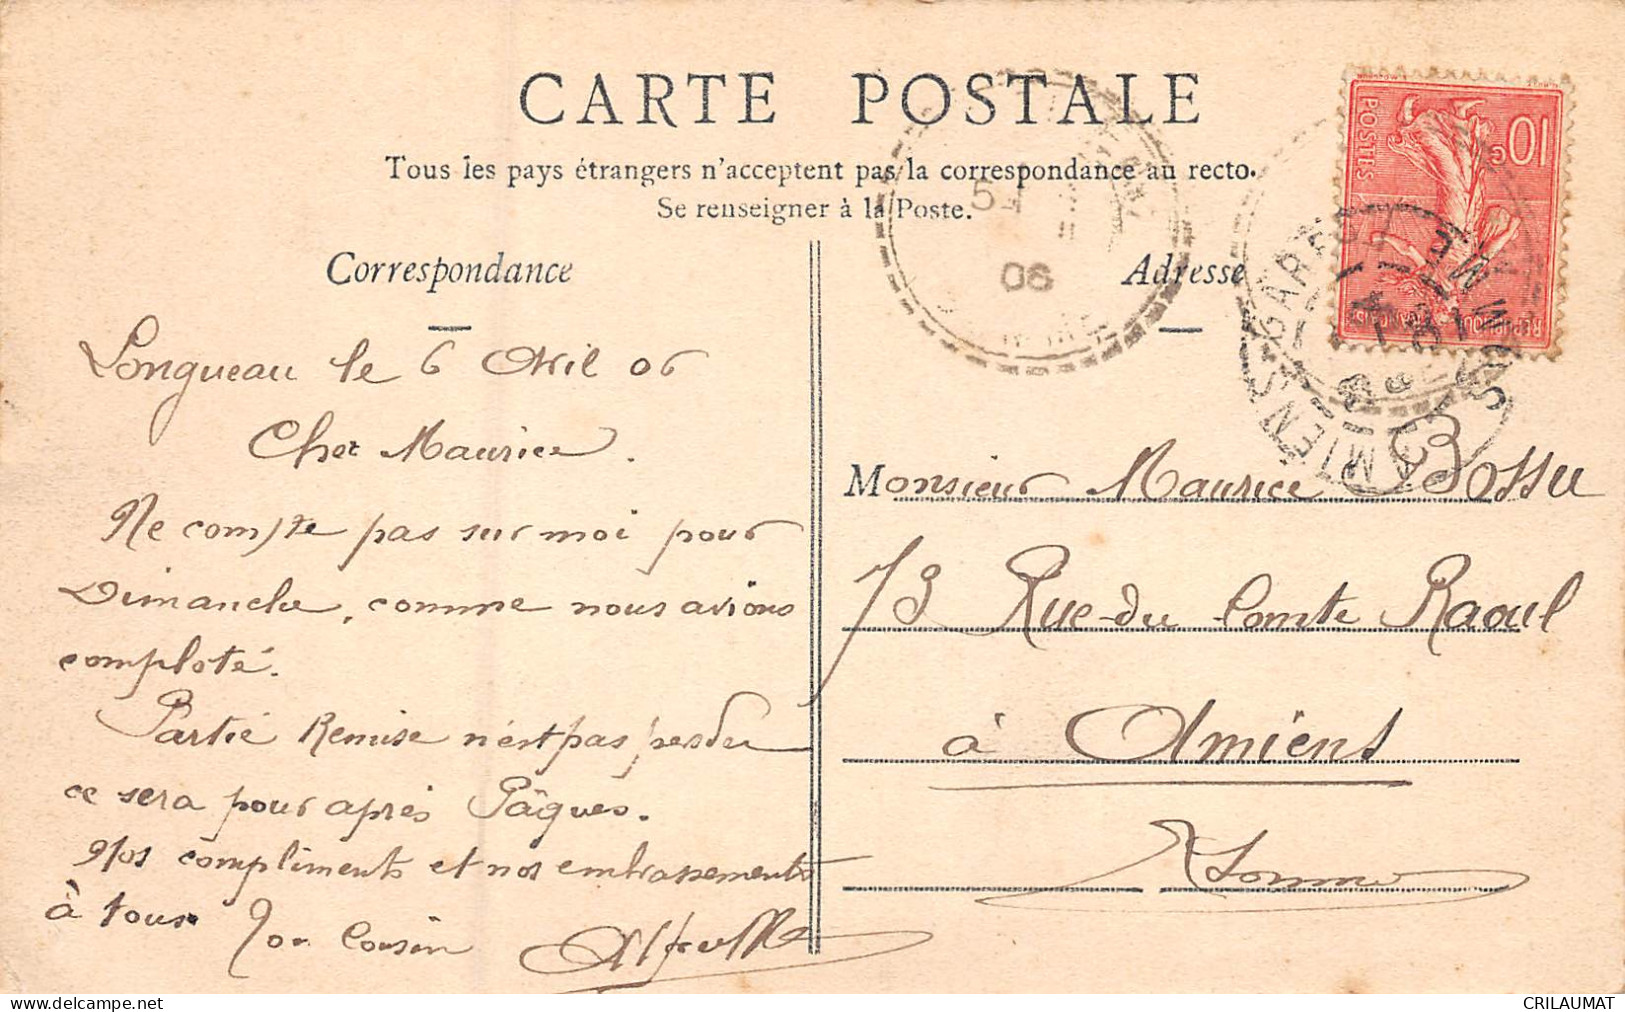 CARTE POSTALE
Tous les pays étrangers n'acceptent pas la correspondance au recto.
Se renseigner à la Poste.
Correspondance
Longueau le 6 Avril 06
Cher Maurice.
Ne compte pas sur moi pour
Dimanche, comme nous avions
comploté.
Partie Remise n'est pas perdu
ce sera pour après Pâques.
Nos compliments et nos embrassements
à tous. Ton Cousin Alfred
Adresse
Monsieur Maurice Bossu
73 Rue du Comte Raoul
à Amiens
Somme
10c
POSTES
REPUBLIQUE FRANÇAISE
AMIENS-GARE
SOMME
06
delcampe.net
CRILAUMAT